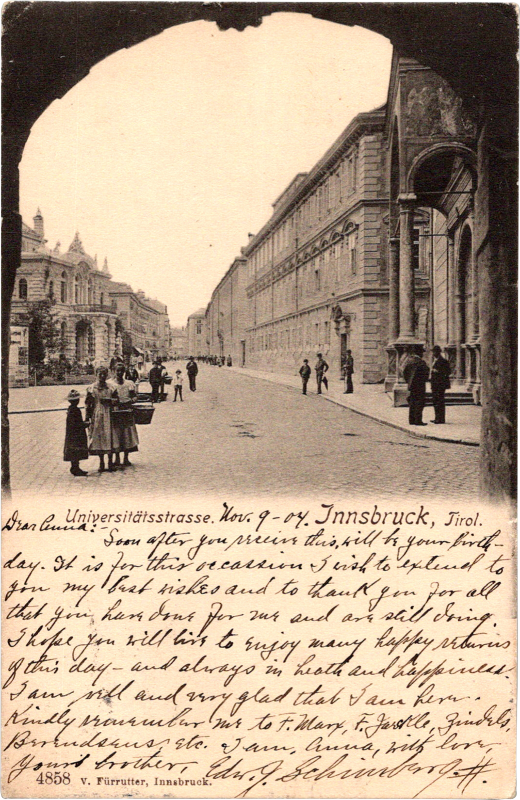 Universitätsstrasse. Nov. 9-04. Innsbruck, Tirol.
Dear Anna:
Soon after you receive this, will be your birth-
day. It is for this occassion I wish to extend to
you my best wishes and to thank you for all
that you have done for me and are still doing.
I hope you will live to enjoy many happy returns
of this day - and always in heath and happiness.
I am well and very glad that I am here.
Kindly remember me to F. Marx, F. Jackle, Zindels,
Berendsens, etc. I am, Anna, with love,
Yours brother, Edw. J.
4858 V. Fürrutter, Innsbruck.